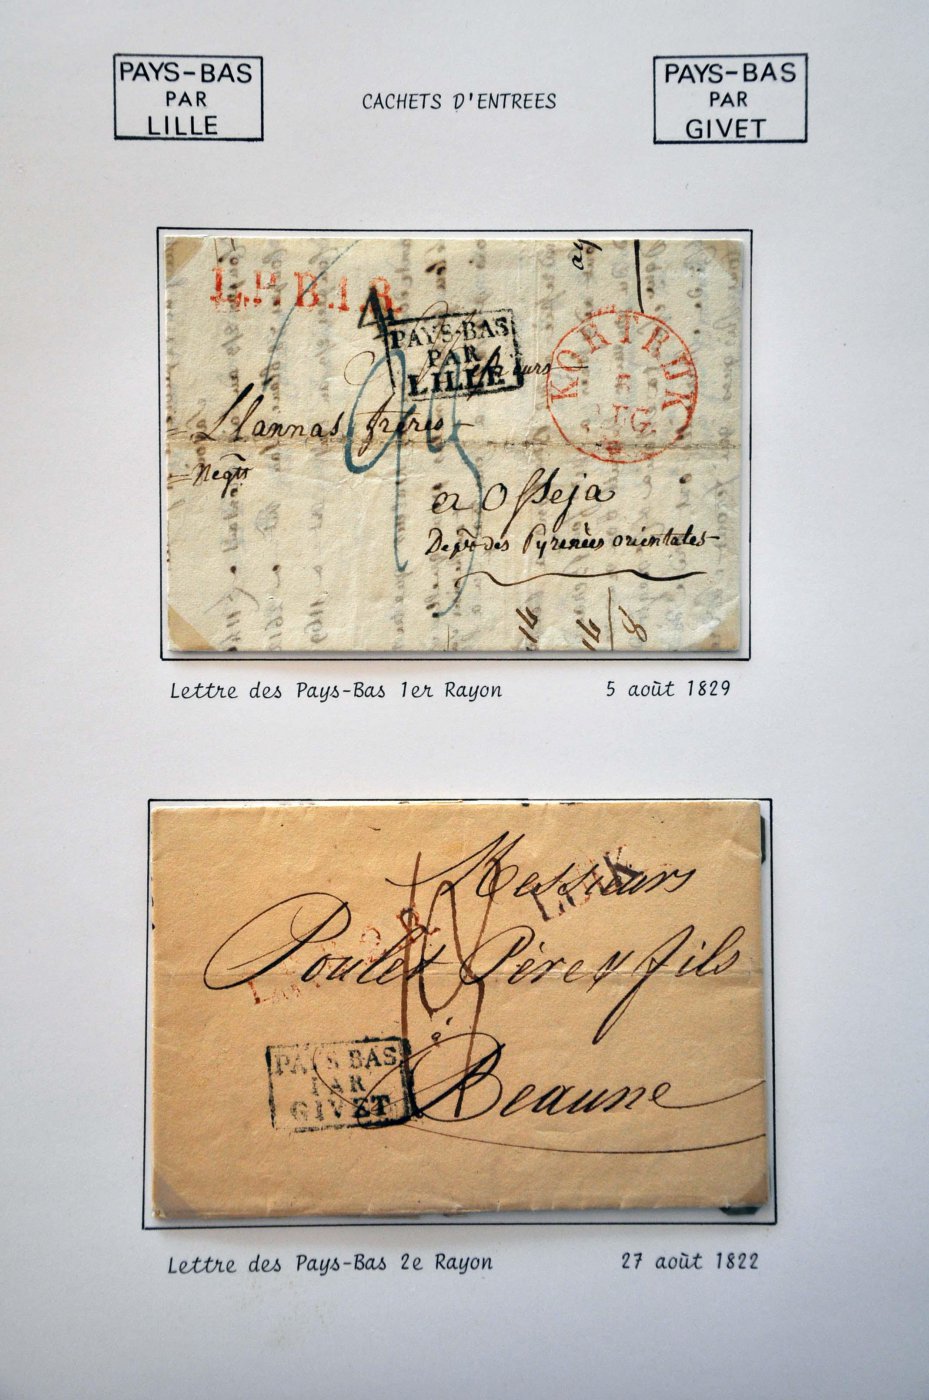 PAYS-BAS
PAR
LILLE
CACHETS D'ENTREES
PAYS-BAS
PAR
GIVET
L.P.B.1.R.
PAYS-BAS
PAR
LILLE
KORTRIJK
AUG.
Llannas frères
Negts
a Osseja
Depnt des Pyrenèes orientales
Lettre des Pays-Bas 1er Rayon
5 août 1829
Messieurs
LUIK
Poulet Père & fils
L.P.B.2.R.
à
PAYS-BAS
PAR
GIVET
Beaune
Lettre des Pays-Bas 2e Rayon
27 août 1822